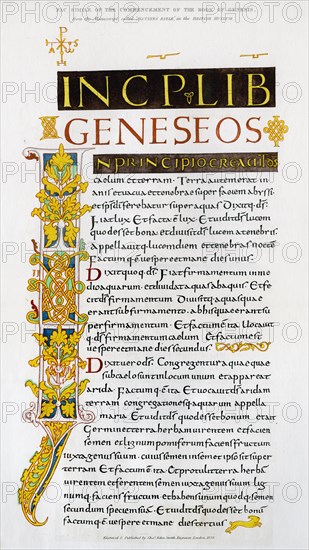 FAC SIMILE OF THE COMMENCEMENT OF THE BOOK OF GENESIS;
from the Manuscript called "ALCUIN'S BIBLE," in the BRITISH MUSEUM.
INCP LIB
GENESEOS
IN PRINCIPIO CREAVIT DS
caelum et terram. Terra autem erat in
anis et vacua et tenebrae super faciem abyssi
et sps di ferebatur super aquas Dixitq. ds.
Fiat lux Et facta e lux. Et vidit ds lucem
quod esset bona et divisit ds lucem a tenebris.
appellavitq. lucem diem et tenebras nocte
Factumq. e vespere et mane dies unus.
Dixit quoq. ds. Fiat firmamentum in me
dio aquarum. et dividat aquas ab aquis. Et fe
cit ds firmamentum Divisitq. aquas quae
erant sub firmamento. ab his quae erant su
per firmamentum. Et factum e ita Vocavit
q. ds firmamentum caelum Et factum est
vespere et mane dies secundus.
Dixit vero ds. Congregentur aquae quae
sub caelo sunt in locum unum et appareat
arida. Factumq. e ita Et vocavit ds aridam
terram congregationesq. aquarum appella
maria Et vidit ds quod esset bonum et ait
Germinet terra herbam virentem et facien
semen et lignum pomiferum faciens fructum
iuxta genus suum. cuius semen in semet ipso sit super
terram Et factum e ita Et protulit terra herba
virentem et ferentem semen iuxta genus suum lig
numq. faciens fructum et habens unumquodq. semen
secundum speciem suam Et vidit ds quod esset bonu
factumq. e vespere et mane dies tertius